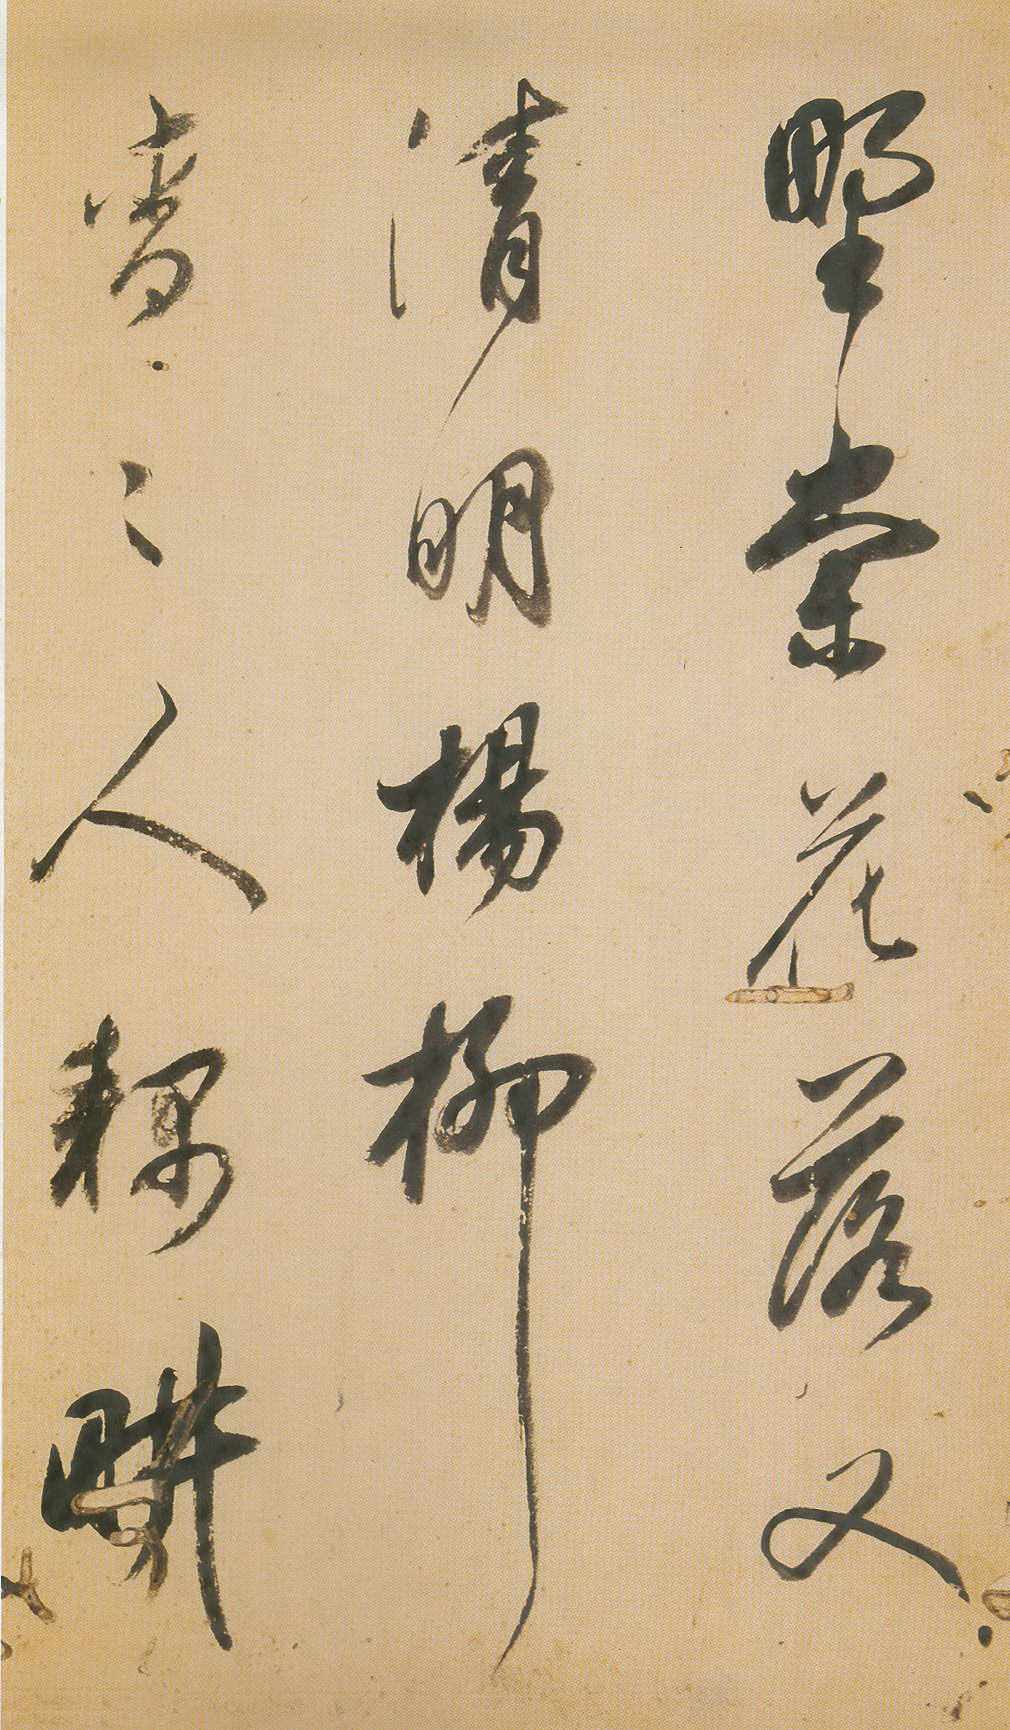 野棠花落又
清明楊柳
青〻人耦畊